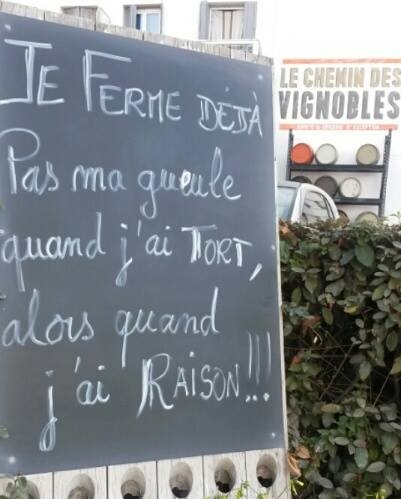 JE FERME DÉJÀ
Pas ma gueule
quand j'ai TORT,
alors quand
j'ai RAISON!!!
LE CHEMIN DES
VIGNOBLES